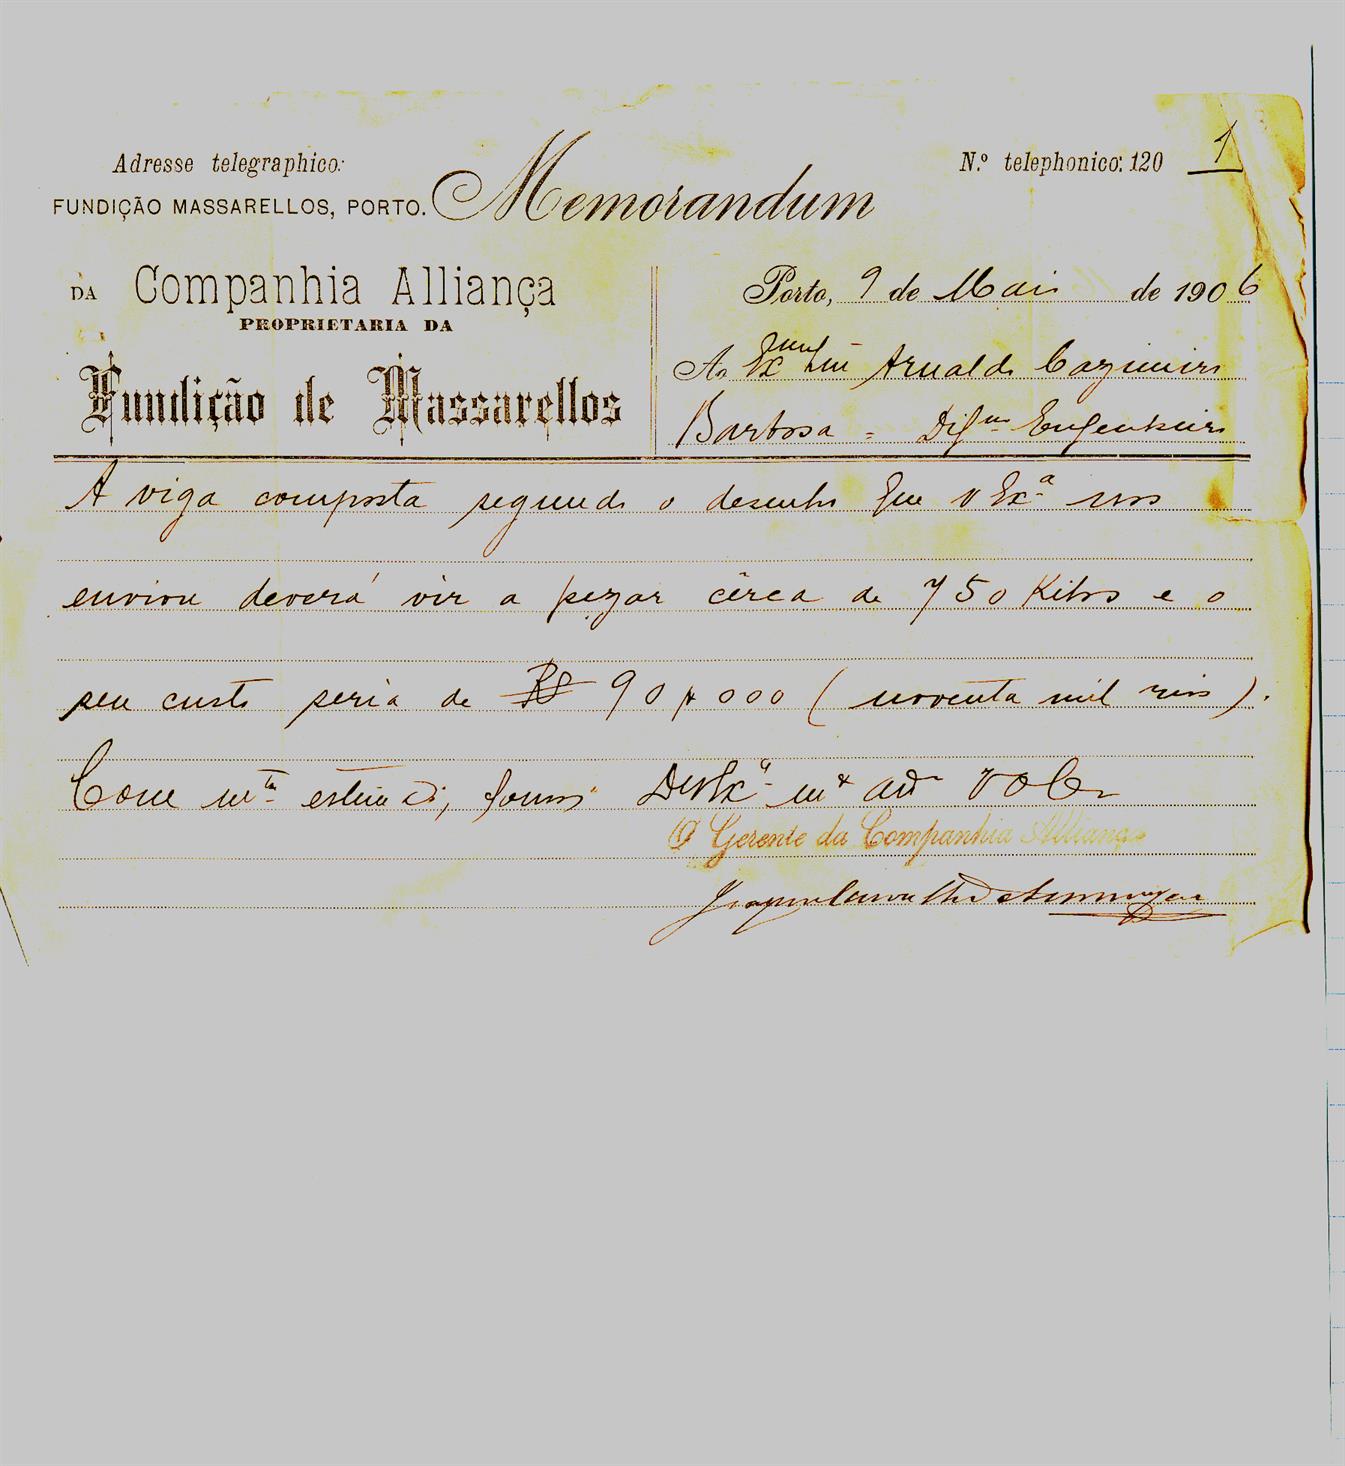 Adresse telegraphico:
FUNDIÇÃO MASSARELLOS, PORTO.
Memorandum
N.º telephonico: 120
1
DA Companhia Alliança
PROPRIETARIA DA
Fundição de Massarellos
Porto, 9 de Maio de 1906
Ao Exmo Snr Arnaldo Cazimiro
Barbosa = Digmo Engenheiro
A viga composta segundo o desenho que V Exª nos
enviou deverá vir a pezar cêrca de 750 Kilos e o
seu custo seria de RS 90$000 (noventa mil reis).
Com mta estima, somos De V Exª
O Gerente da Companhia Alliança